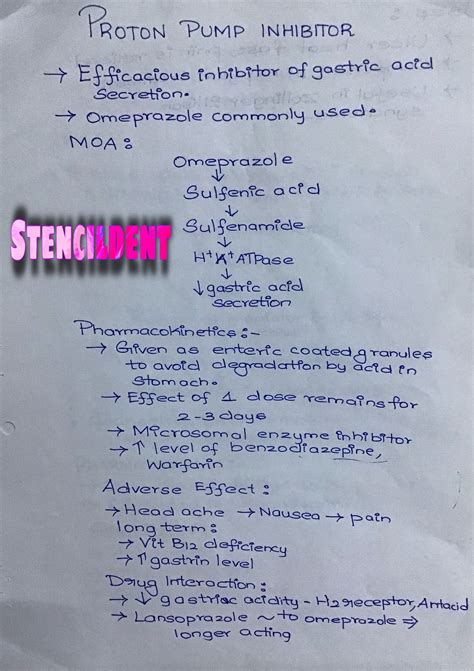 PROTON PUMP INHIBITOR
→ Efficacious inhibitor of gastric acid
Secretion.
→ Omeprazole commonly used.
MOA:
Omeprazole
↓
Sulfenic acid
↓
Sulfenamide
STENCILDENT
↓
H⁺K⁺ATPase
↓
↓ gastric acid
secretion
Pharmacokinetics:-
→ Given as enteric coated granules
to avoid degradation by acid in
stomach.
→ Effect of 1 dose remains for
2-3 days
→ Microsomal enzyme inhibitor
→ ↑ level of benzodiazepine,
warfarin
Adverse Effect:
→ Head ache → Nausea → pain
long term:
→ Vit B12 deficiency
→ ↑ gastrin level
Drug Interaction:
→ ↓ gastric acidity - H2 receptor, Antacid
→ Lansoprazole ~ to omeprazole ⇒
longer acting